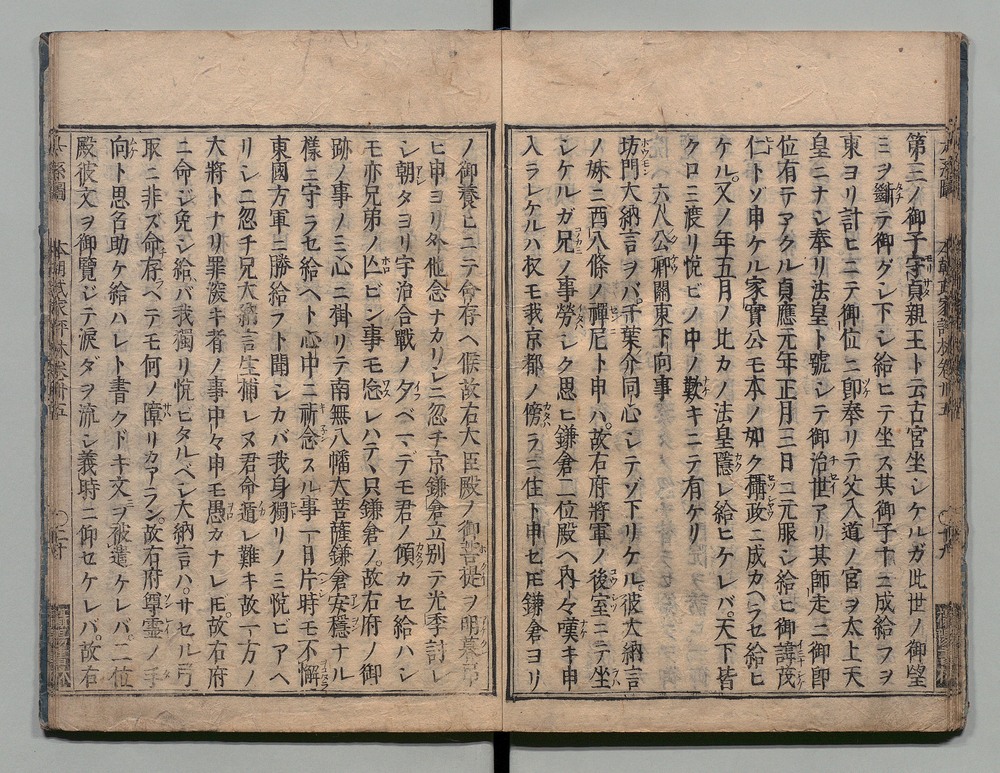 第三ノ御子守貞親王ト云古宮坐シケルガ此世ノ御望
ミヲ斷テ御グシ下シ給ヒテ坐ス其御子十ニ成給フヲ
東ヨリ計ヒニテ御位ニ卽奉リテ父入道ノ宮ヲ太上天
皇ニナシ奉リ法皇ト號シテ御治世アリ其師走ニ御卽
位有テアクル貞應元年正月三日ニ元服シ給ヒ御諱茂
仁トゾ申ケル家實公モ本ノ如ク攝政ニ成カヘラセ給ヒ
ケル又ノ年五月ノ比カノ法皇隱レ給ヒケレバ天下皆
クロミ渡リ悅ビノ中ノ歎キニテ有ケリ
六八八公卿關東下向事
坊門大納言ヲバ千葉介同心シテゾ下リケル彼大納言
ノ妹ニ西八條ノ禪尼ト申ハ故右府將軍ノ後室ニテ坐
シケルガ兄ノ事勞シク思ヒ鎌倉二位殿ヘ內々嘆キ申
入ラレケルハ权モ我京都ノ傍ラニ住ト申セ𪜈鎌倉ヨリ
ノ御養ヒニテ命存ヘ候故右大臣殿ノ御菩提ヲ明暮弔
ヒ申ヨリ外他念ナカリシニ忽チ京鎌倉立別テ光季討レ
シ朝タヨリ宇治合戰ノ夕ベマデモ君ノ傾カセ給ハシ
モ亦兄弟ノ亾ビン事モ忘レハテヽ只鎌倉ノ故右府ノ御
跡ノ事ノミ心ニ掛リテ南無八幡大菩薩鎌倉安穩ナル
樣ニ守ラセ給ヘト心中ニ祈念スル事一月片時モ不懈
東國方軍ニ勝給フト聞シカバ我身獨リノミ悅ビアヘ
リシニ忽チ兄大納言生捕レヌ君命遁レ難キ故一方ノ
大將トナリ罪深キ者ノ事申々申モ愚カナレ𪜈故右府
ニ命ジ免シ給バ我獨リ悅ビタルベシ大納言ハサセル弓
取ニ非ズ命存ヘテモ何ノ障リカアラン故右府尊霊ノ手
向ト思召助ケ給ハレト書クドキ文ヲ被遣ケレバ二位
殿彼文ヲ御覽ジテ淚ダヲ流シ義時ニ仰セケレバ故右
本朝武家評林卷卌五